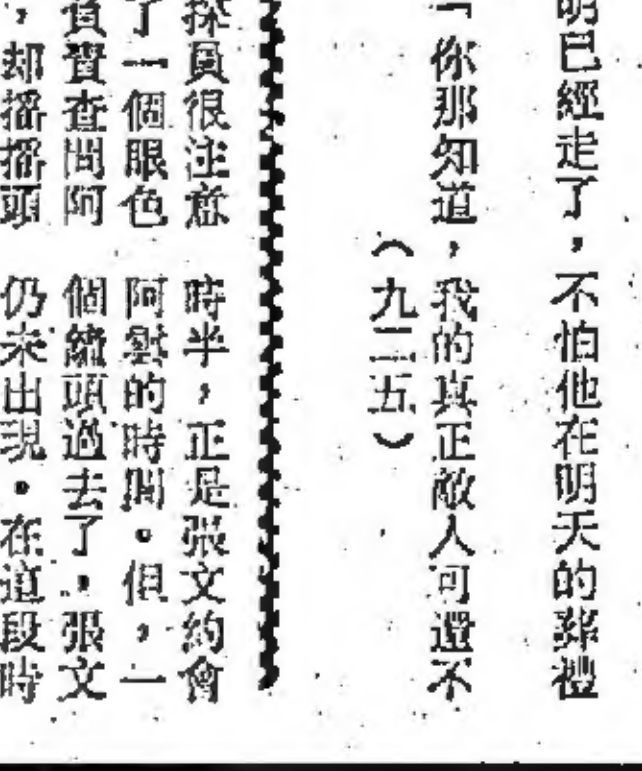 明已經走了，不怕他在明天的葬禮
「你那知道，我的真正敵人可還不
（九二五）
探員很注意
了一個眼色
負責查問阿
，却搖搖頭
時半，正是張文約會
阿雲的時間。但，一
個鐘頭過去了，張文
仍未出現。在這段時